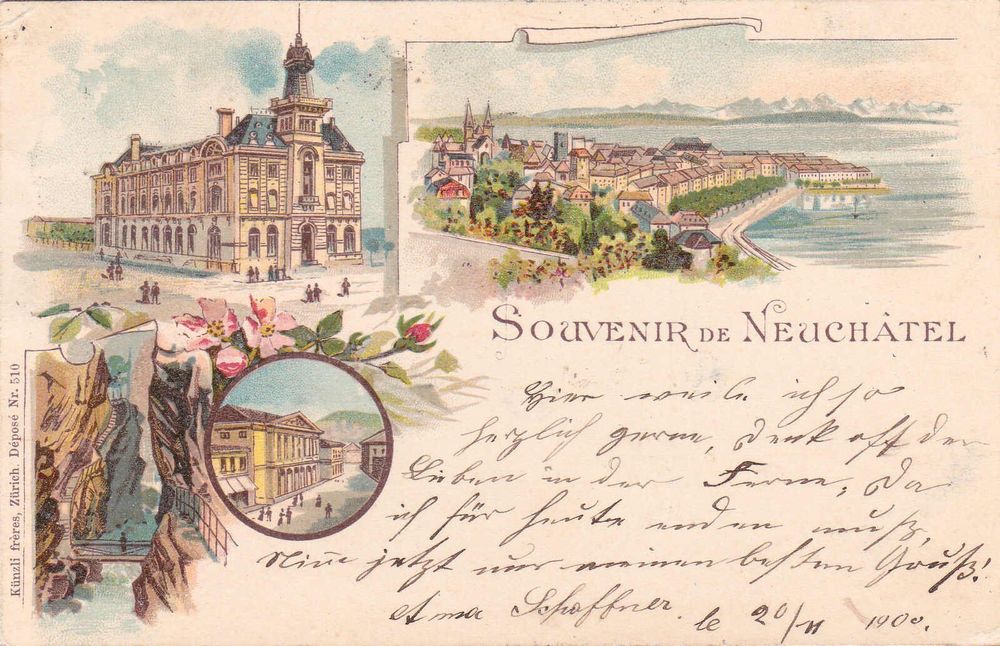 SOUVENIR DE NEUCHÂTEL
Hier weile ich so
herzlich gerne, Denk oft der
Lieben in der Ferne, Da
ich für heute enden muß,
Nim̅ jetzt nur meinen besten Gruß!
Schaffner.
le 20/11 1900.
Künzli frères, Zürich. Déposé Nr. 510